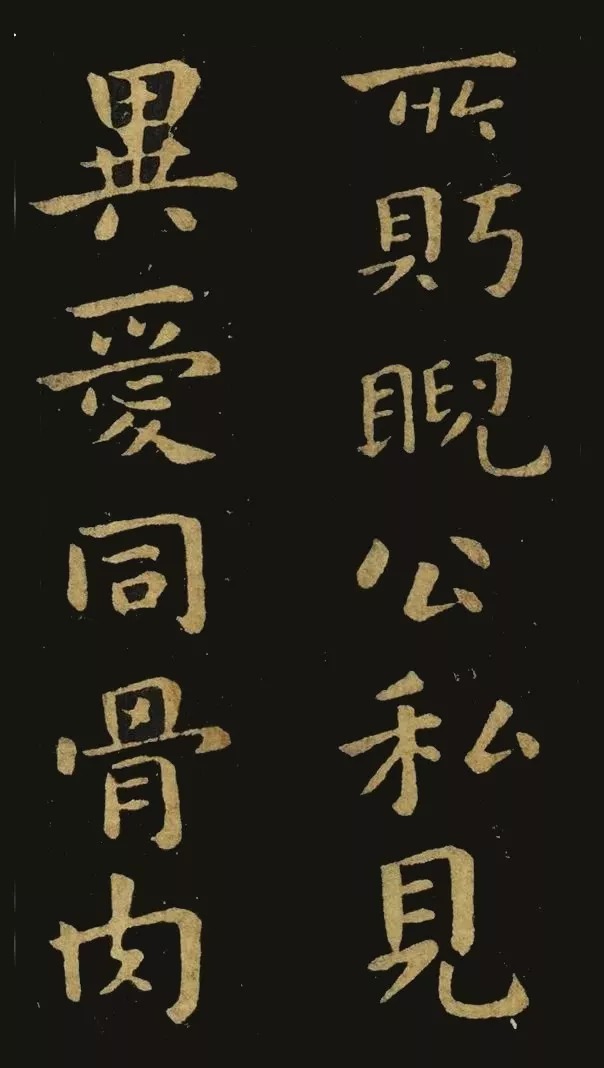 所睨公私見
異愛同骨肉